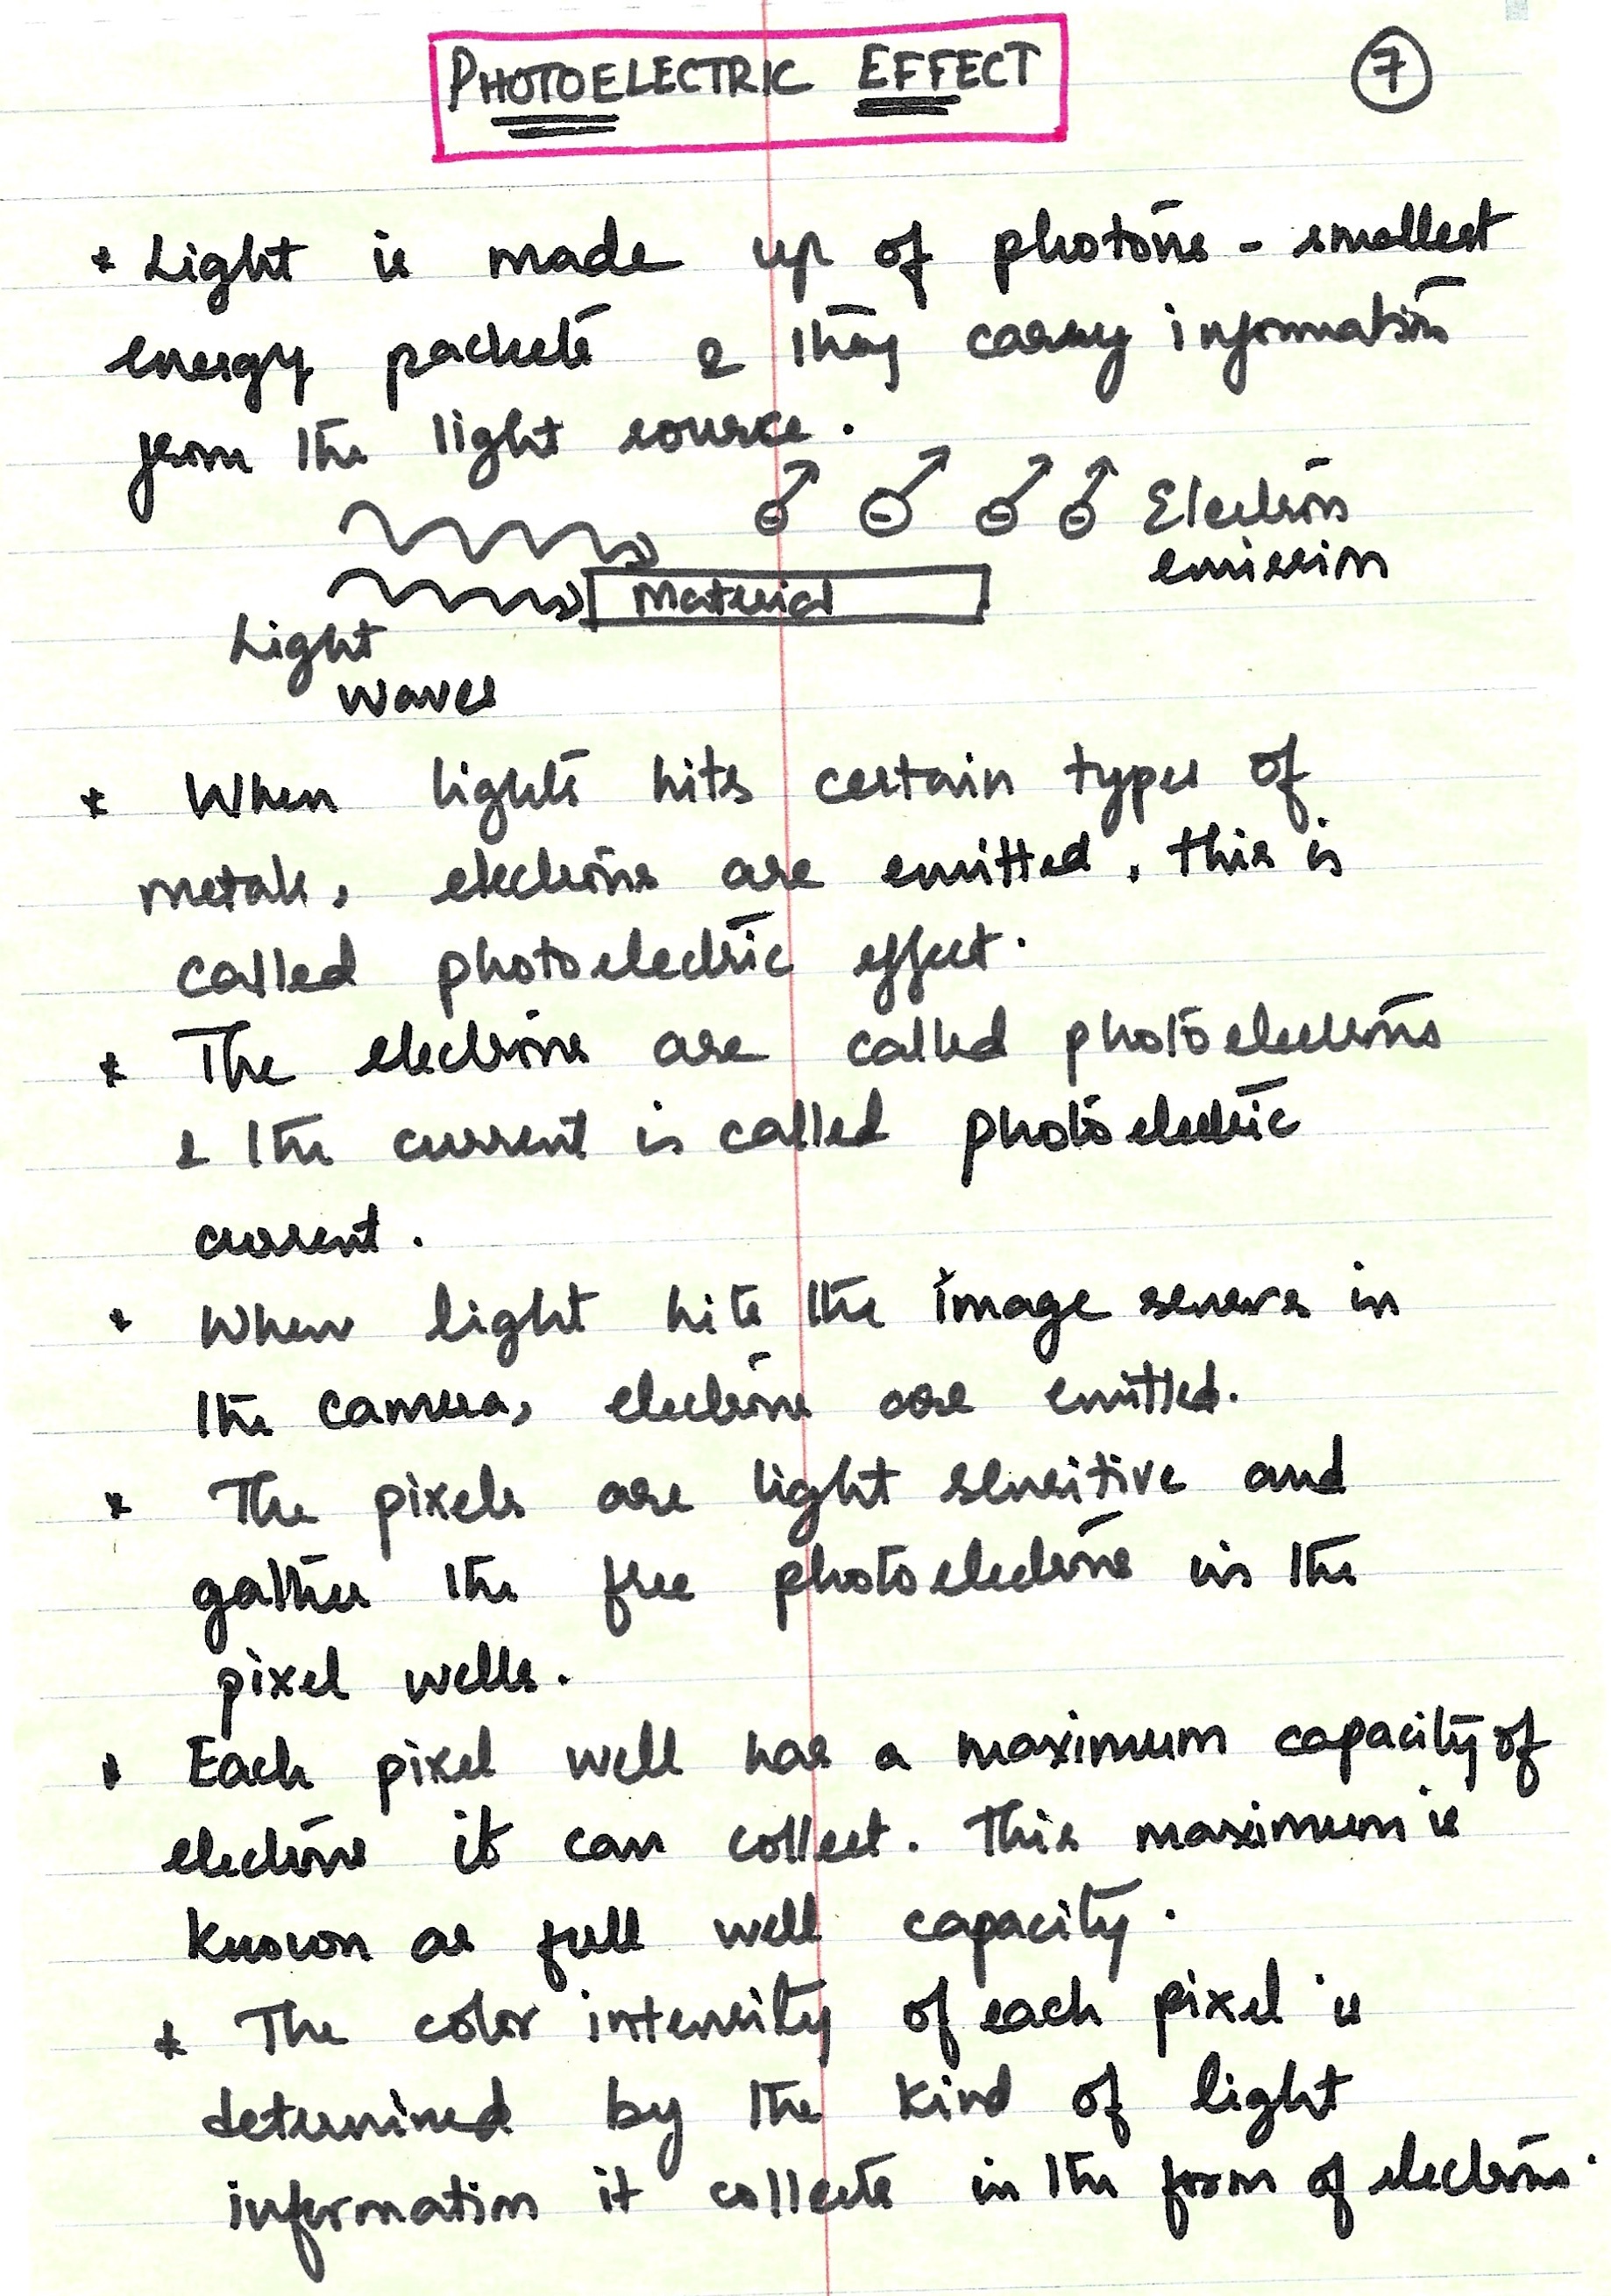 PHOTOELECTRIC EFFECT
7
* Light is made up of photons - smallest
energy packets & they carry information
from the light source.
Electron
emission
Material
Light
waves
* When lights hits certain types of
metals, electrons are emitted, this is
called photoelectric effect.
* The electrons are called photoelectrons
& the current is called photoelectric
current.
* When light hits the image sensors in
the camera, electrons are emitted.
* The pixels are light sensitive and
gather the free photoelectrons in the
pixel wells.
* Each pixel well has a maximum capacity of
electrons it can collect. This maximum is
known as full well capacity.
* The color intensity of each pixel is
determined by the kind of light
information it collects in the form of electrons.